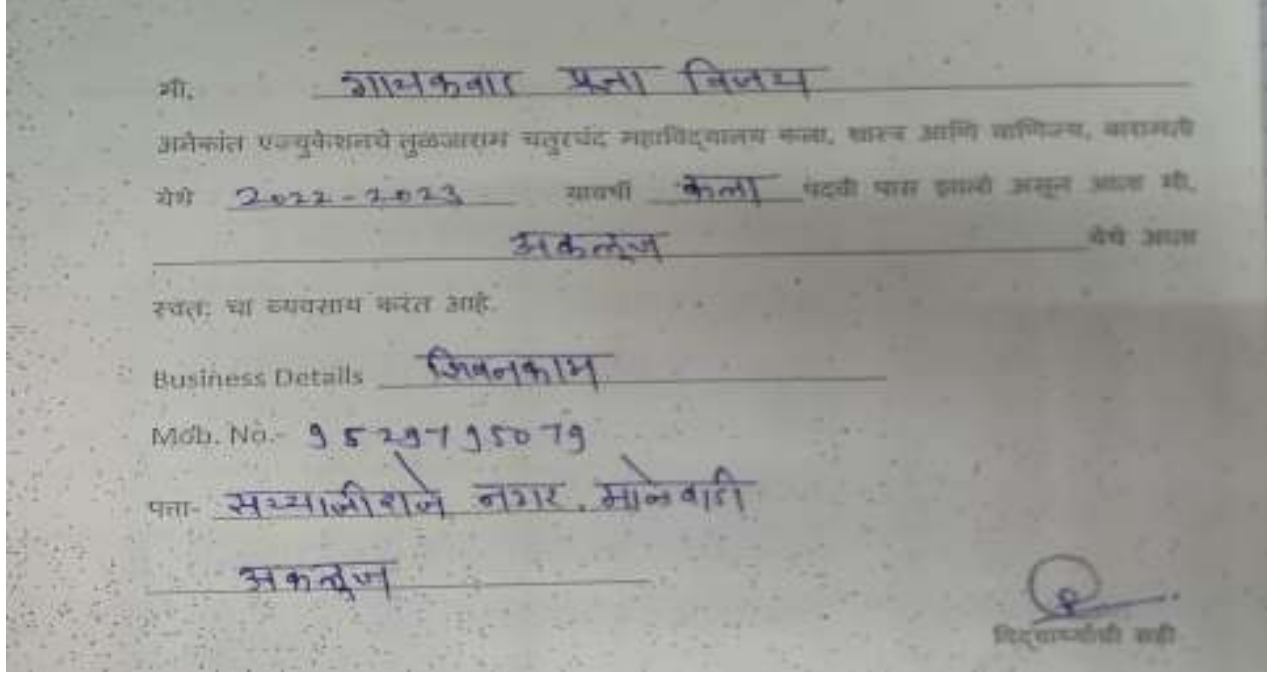 मी, गायकवाड प्रज्ञा विजय
अनेकांत एज्युकेशनचे तुळजाराम चतुरचंद महाविद्यालय कला, शास्त्र आणि वाणिज्य, बारामती
येथे 2022-2023 यावर्षी कला पदवी पास झालो असून आता मी,
अकलूज येथे आता
स्वत: चा व्यवसाय करत आहे.
Business Details शिवनकाम
Mob. No.- 9529795079
पत्ता- नगर, माळेवाडी
अकलूज
विद्यार्थ्याची सही